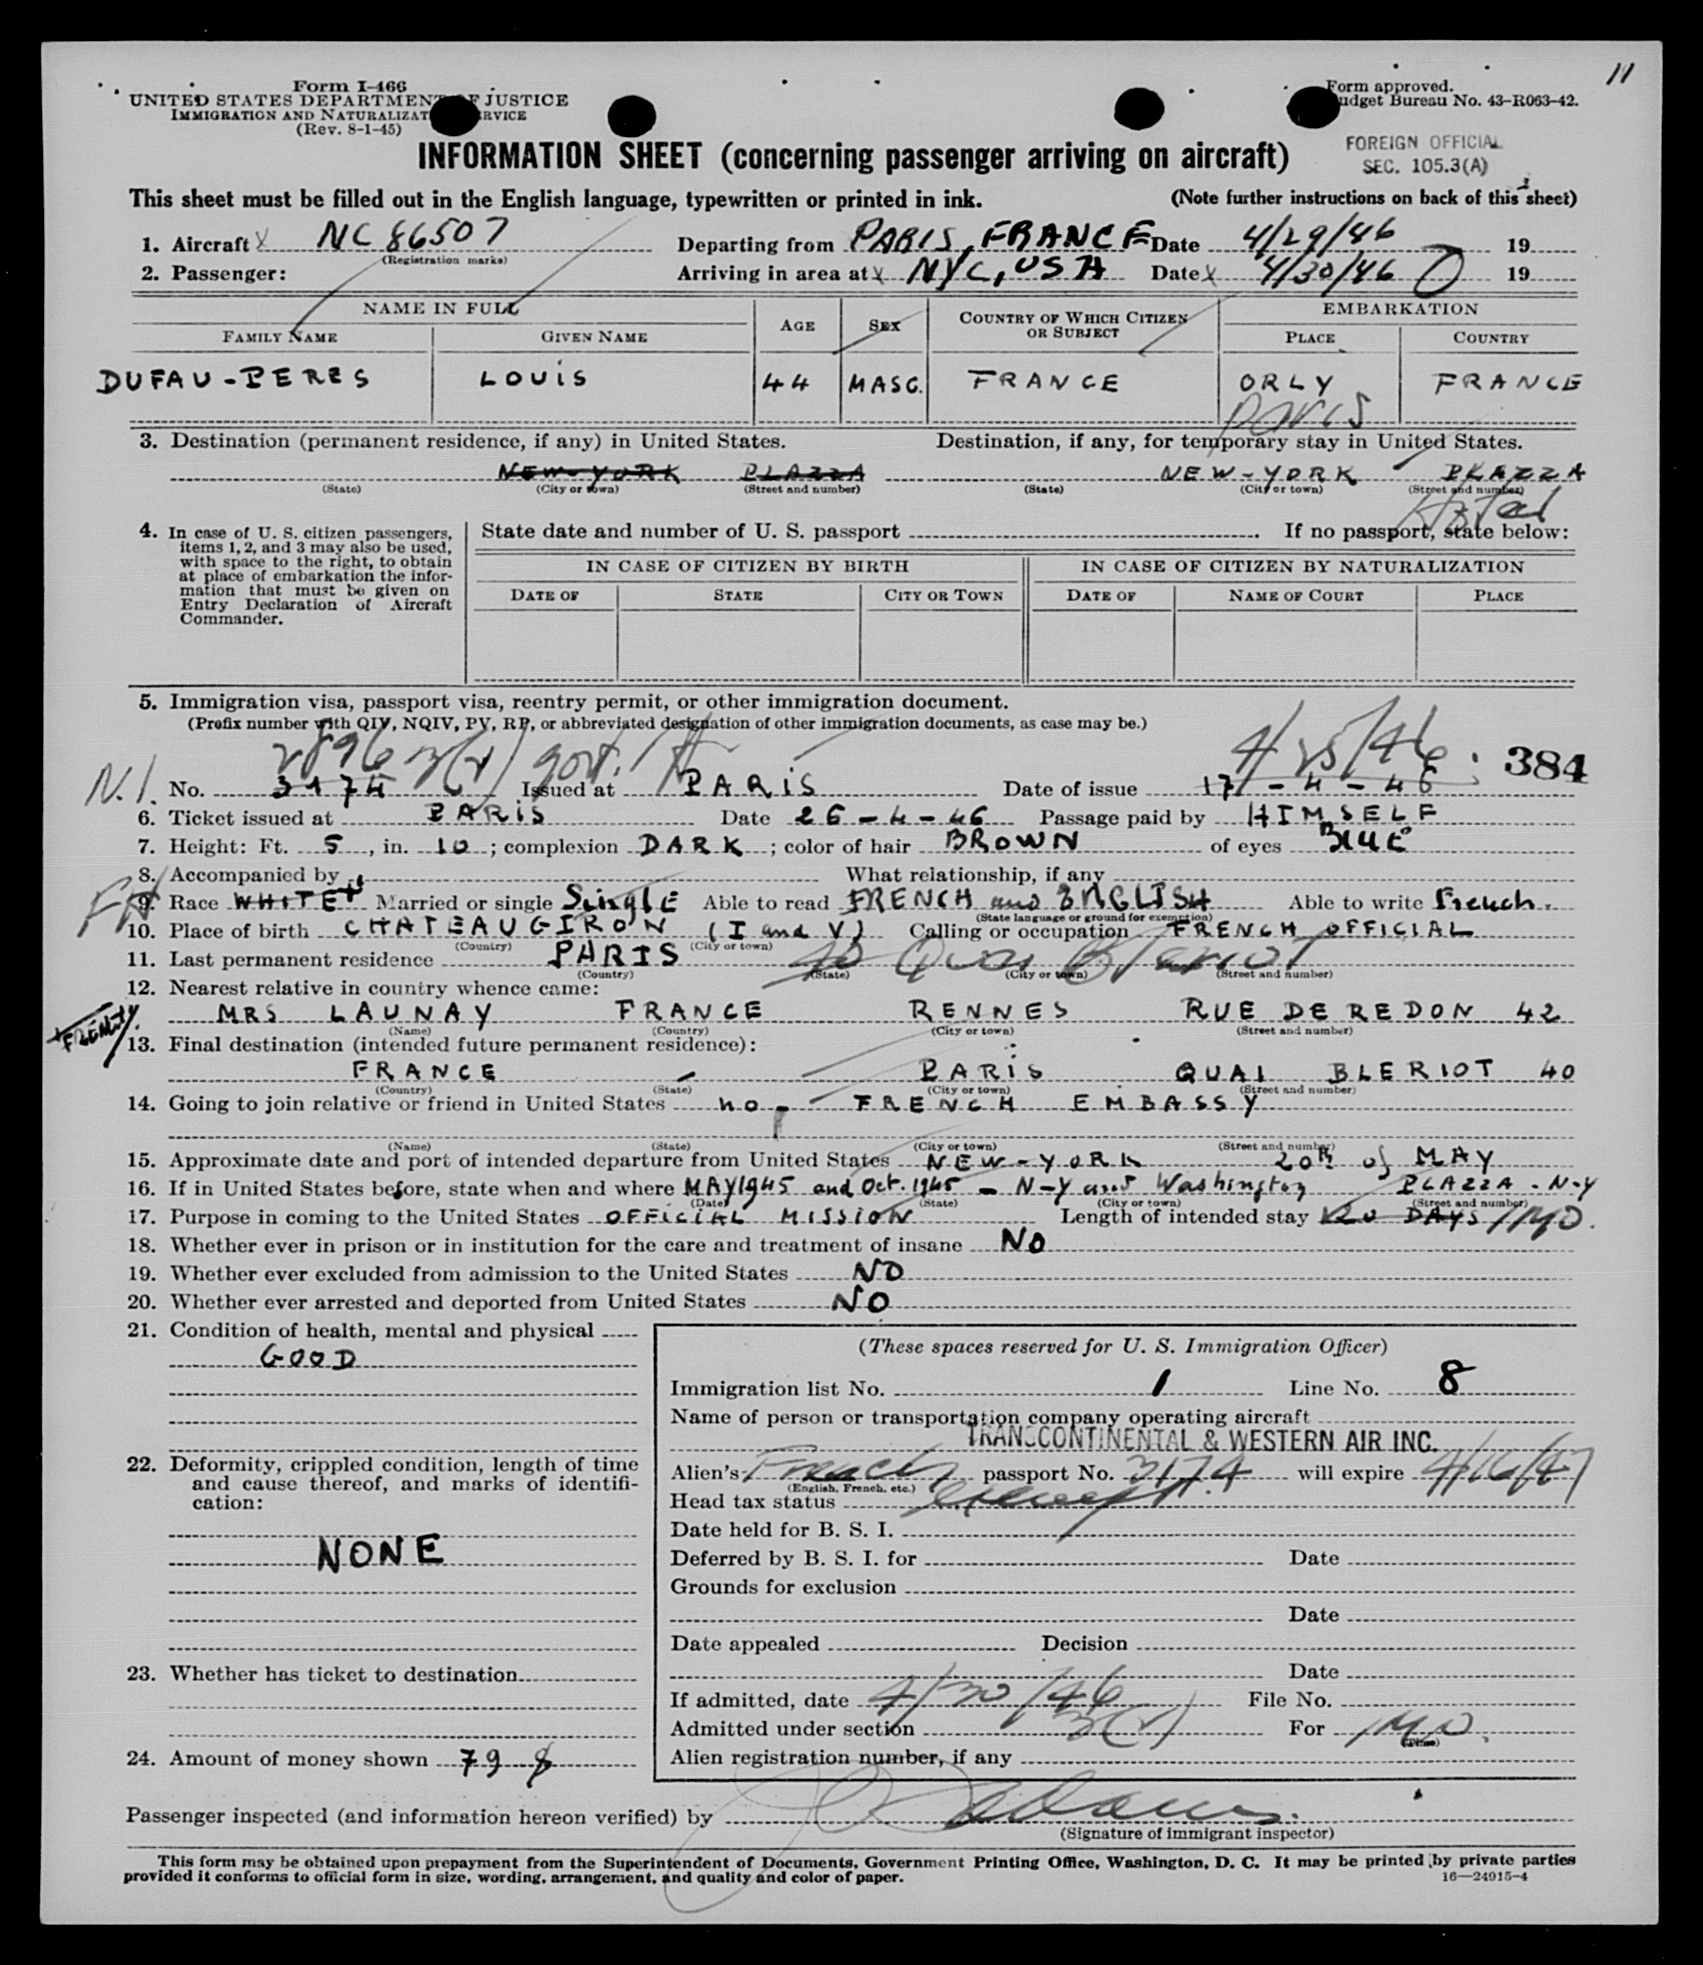 11
Form I-466
UNITED STATES DEPARTMENT OF JUSTICE
IMMIGRATION AND NATURALIZATION SERVICE
(Rev. 8-1-45)
Form approved.
Budget Bureau No. 43-R063-42.
INFORMATION SHEET (concerning passenger arriving on aircraft)
FOREIGN OFFICIAL
SEC. 105.3(A)
This sheet must be filled out in the English language, typewritten or printed in ink. (Note further instructions on back of this sheet)
1. Aircraft X NC 86507 Departing from PARIS, FRANCE Date 4/29/46 19
(Registration marks)
2. Passenger: Arriving in area at X NYC, USA Date X 4/30/46 19
NAME IN FULL AGE SEX COUNTRY OF WHICH CITIZEN OR SUBJECT EMBARKATION
FAMILY NAME GIVEN NAME PLACE COUNTRY
DUFAU-PERES LOUIS 44 MASC. FRANCE ORLY FRANCE
PARIS
3. Destination (permanent residence, if any) in United States. Destination, if any, for temporary stay in United States.
NEW-YORK PLAZZA NEW-YORK PLAZZA
(State) (City or town) (Street and number) (State) (City or town) (Street and number)
Hotel
4. In case of U. S. citizen passengers, items 1, 2, and 3 may also be used, with space to the right, to obtain at place of embarkation the information that must be given on Entry Declaration of Aircraft Commander.
State date and number of U. S. passport . If no passport, state below:
IN CASE OF CITIZEN BY BIRTH IN CASE OF CITIZEN BY NATURALIZATION
DATE OF STATE CITY OR TOWN DATE OF NAME OF COURT PLACE
5. Immigration visa, passport visa, reentry permit, or other immigration document.
(Prefix number with QIV, NQIV, PV, RP, or abbreviated designation of other immigration documents, as case may be.)
2896 3(1) govt. 4/25/46 384
N.I. No. 3174 Issued at PARIS Date of issue 17-4-46
6. Ticket issued at PARIS Date 26-4-46 Passage paid by HIMSELF
7. Height: Ft. 5, in. 10; complexion DARK; color of hair BROWN of eyes BLUE
8. Accompanied by What relationship, if any
9. Race WHITE Married or single SINGLE Able to read FRENCH and ENGLISH Able to write French.
(State language or ground for exemption)
10. Place of birth CHATEAUGIRON (I and V) Calling or occupation FRENCH OFFICIAL
(Country) (City or town)
11. Last permanent residence PARIS 40 Quai Bleriot
(Country) (State) (City or town) (Street and number)
12. Nearest relative in country whence came:
MRS LAUNAY FRANCE RENNES RUE DE REDON 42
(Name) (Country) (City or town) (Street and number)
13. Final destination (intended future permanent residence):
FRANCE - PARIS QUAI BLERIOT 40
(Country) (State) (City or town) (Street and number)
14. Going to join relative or friend in United States no - FRENCH EMBASSY
(Name) (State) (City or town) (Street and number)
15. Approximate date and port of intended departure from United States NEW-YORK 20th of MAY
16. If in United States before, state when and where MAY 1945 and Oct. 1945 - N-Y and Washington PLAZZA - N-Y
(Date) (State) (City or town) (Street and number)
17. Purpose in coming to the United States OFFICIAL MISSION Length of intended stay 20 DAYS 1 MO.
18. Whether ever in prison or in institution for the care and treatment of insane NO
19. Whether ever excluded from admission to the United States NO
20. Whether ever arrested and deported from United States NO
21. Condition of health, mental and physical
GOOD
22. Deformity, crippled condition, length of time and cause thereof, and marks of identification:
NONE
23. Whether has ticket to destination
24. Amount of money shown 79 $
(These spaces reserved for U. S. Immigration Officer)
Immigration list No. 1 Line No. 8
Name of person or transportation company operating aircraft
TRANSCONTINENTAL & WESTERN AIR INC.
Alien's French passport No. 3174 will expire 4/16/47
(English, French, etc.)
Head tax status exempt
Date held for B. S. I.
Deferred by B. S. I. for Date
Grounds for exclusion
Date
Date appealed Decision
Date
If admitted, date 4/30/46 File No.
Admitted under section 3(1) For 1 MO.
(Time)
Alien registration number, if any
Passenger inspected (and information hereon verified) by
(Signature of immigrant inspector)
This form may be obtained upon prepayment from the Superintendent of Documents, Government Printing Office, Washington, D. C. It may be printed by private parties
provided it conforms to official form in size, wording, arrangement, and quality and color of paper.
16—24915-4